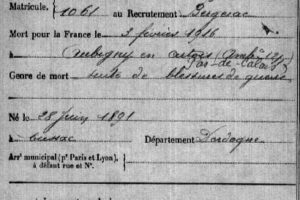 Matricule. 1061 au Recrutement Bergerac
Mort pour la France le 3 février 1916
à Aubigny en artois (Ambce 12/
Pas-de-Calais
Genre de mort suite de blessures de guerre
Né le 28 juin 1891
à Bussac Département Dordogne
Arrt municipal (pr Paris et Lyon),
à défaut rue et N°.